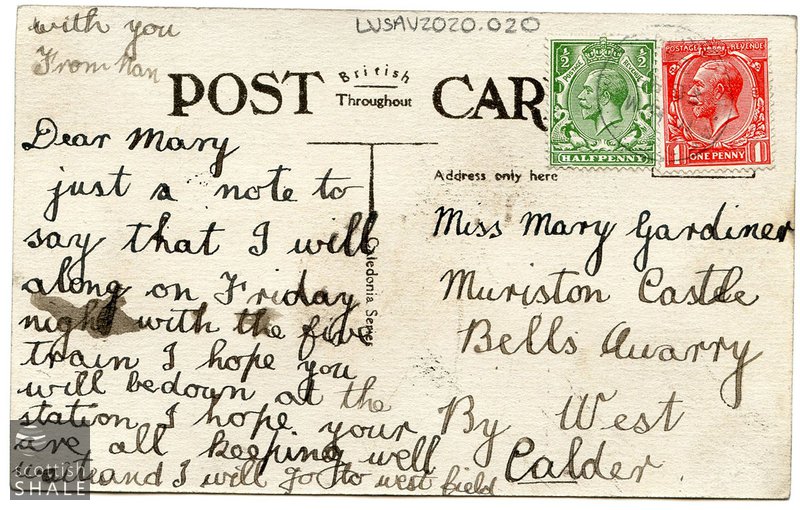 with you
From Nan
LVSAV2020.020
POST CAR
British
Throughout
½ ½
POSTAGE
HALFPENNY
POSTAGE REVENUE
1 ONE PENNY 1
Dear Mary
just a note to
say that I will
along on Friday
night with the five
train I hope you
will be down at the
station I hope your
are all keeping well
and I will go to west field
Caledonia Series
Address only here
Miss Mary Gardiner
Muriston Castle
Bells Quarry
By West
Calder
scottish
SHALE